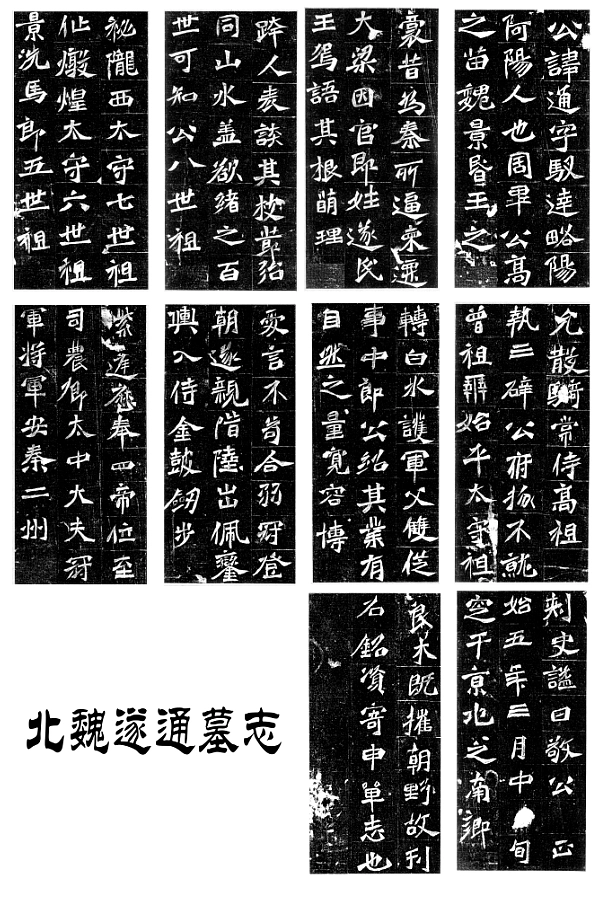 公諱通字馭達略陽
阿陽人也周畢公高
之苗魏景昬王之
裏昔為秦所逼東遷
大梁因官即姓遂氏
王焉語其根萌理
跨人表談其枚殆
同山水盖欲緒之百
世可知公八世祖
秘隴西太守七世祖
仙燉煌太守六世祖
景洗馬郎五世祖
允散騎常侍高祖
執三辟公府掾不就
曾祖始平太守祖
轉白水護軍父雙從
事中郎公紹其業有
自然之量寬容博
愛言不苟合弱冠登
朝遂親階陸出佩鑾
輿入侍金鼓鈒步
紫遲歷奉四帝位至
司農卿太中大夫冠
軍將軍安秦二州
刺史諡曰敬公 正
始五年三月中旬
窆于京兆之南鄉
良木既摧朝野故刊
石銘湏寄申單志也
北魏遂通墓志